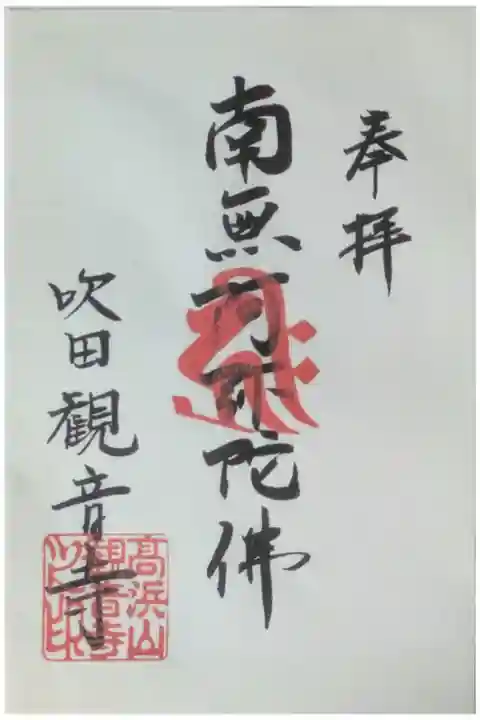 奉拝
南無阿弥陀佛
吹田観音寺
髙浜山
観音寺
之印